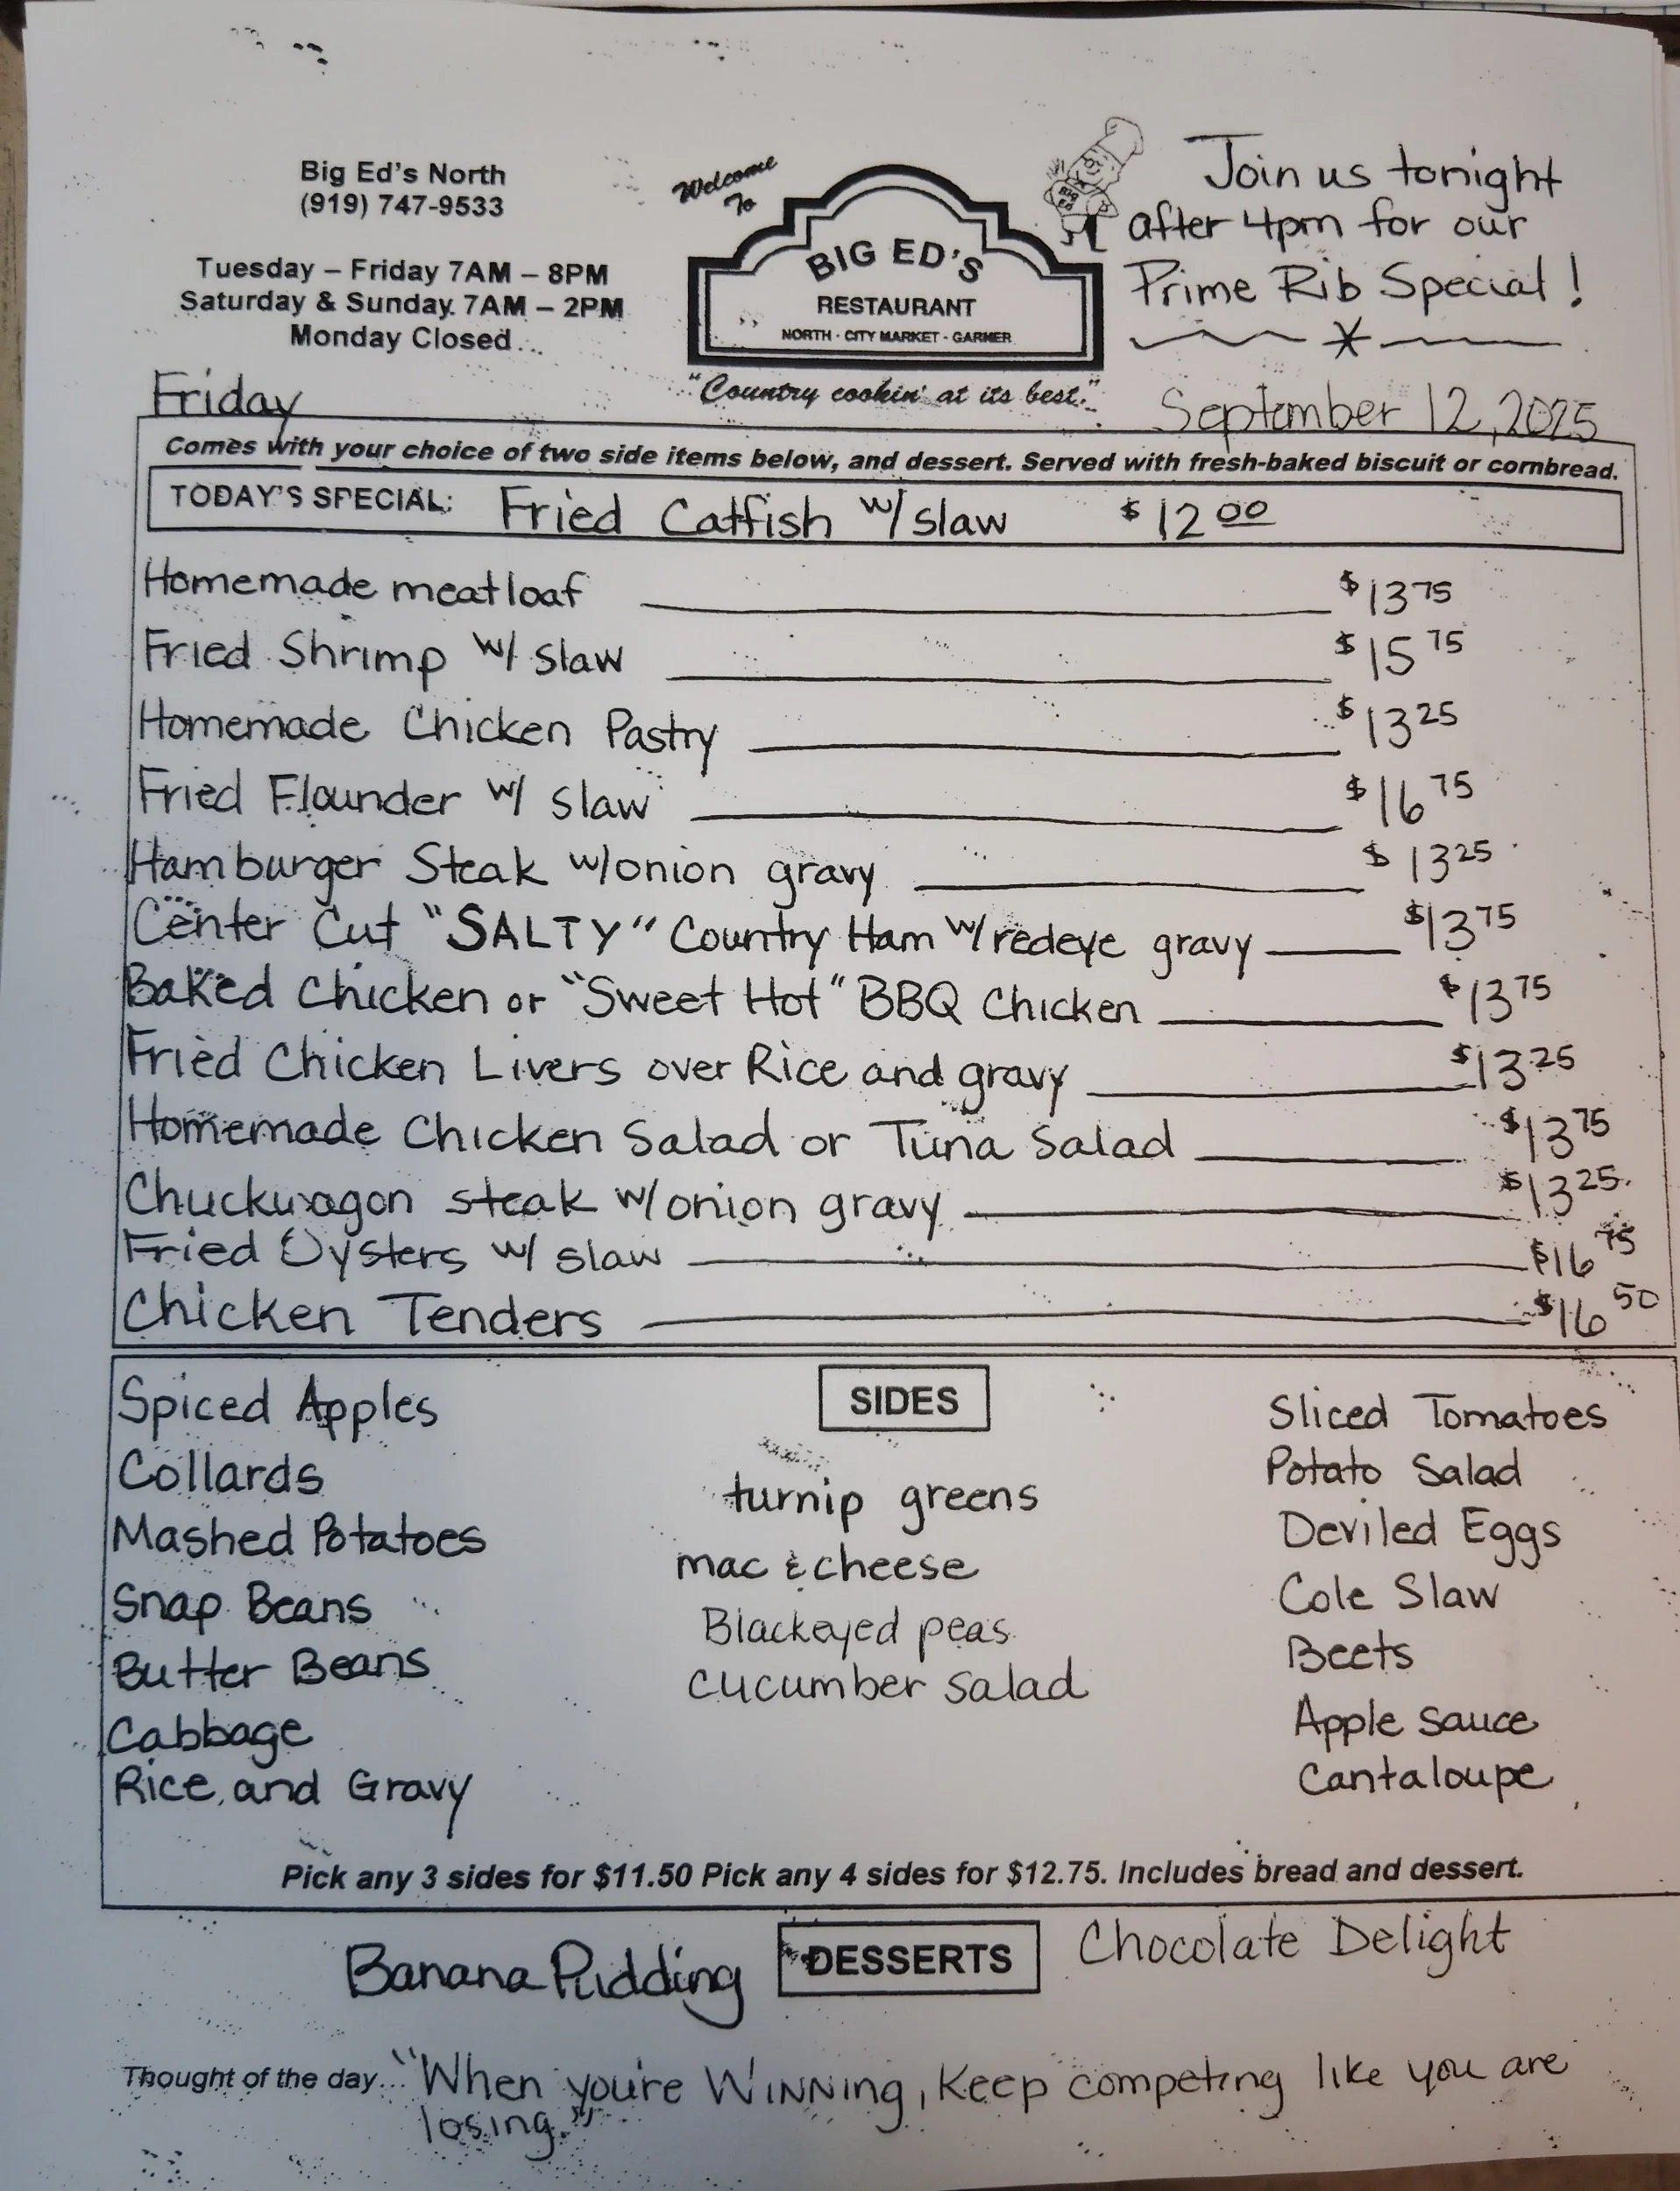 Big Ed's North
(919) 747-9533
Tuesday – Friday 7AM – 8PM
Saturday & Sunday. 7AM – 2PM
Monday Closed
Welcome
To
BIG ED'S
RESTAURANT
NORTH - CITY MARKET - GARNER
"Country cookin' at its best."
BIG
ED
Join us tonight
after 4pm for our
Prime Rib Special!
Friday
September 12, 2025
Comes with your choice of two side items below, and dessert. Served with fresh-baked biscuit or cornbread.
TODAY'S SPECIAL: Fried Catfish w/ slaw $12 00
Homemade meatloaf $13 75
Fried Shrimp w/ slaw $15 75
Homemade Chicken Pastry $13 25
Fried Flounder w/ slaw $16 75
Hamburger Steak w/onion gravy $13 25
Center Cut "SALTY" Country Ham w/redeye gravy $13 75
Baked Chicken or "Sweet Hot" BBQ Chicken $13 75
Fried Chicken Livers over Rice and gravy $13 25
Homemade Chicken Salad or Tuna Salad $13 75
Chuckwagon steak w/onion gravy $13 25
Fried Oysters w/ slaw $16 75
Chicken Tenders $16 50
SIDES
Spiced Apples
Collards
Mashed Potatoes
Snap Beans
Butter Beans
Cabbage
Rice and Gravy
turnip greens
mac & cheese
Blackeyed peas
cucumber salad
Sliced Tomatoes
Potato Salad
Deviled Eggs
Cole Slaw
Beets
Apple sauce
Cantaloupe
Pick any 3 sides for $11.50 Pick any 4 sides for $12.75. Includes bread and dessert.
DESSERTS
Banana Pudding
Chocolate Delight
Thought of the day... "When you're WINNing, Keep competing like you are
losing."